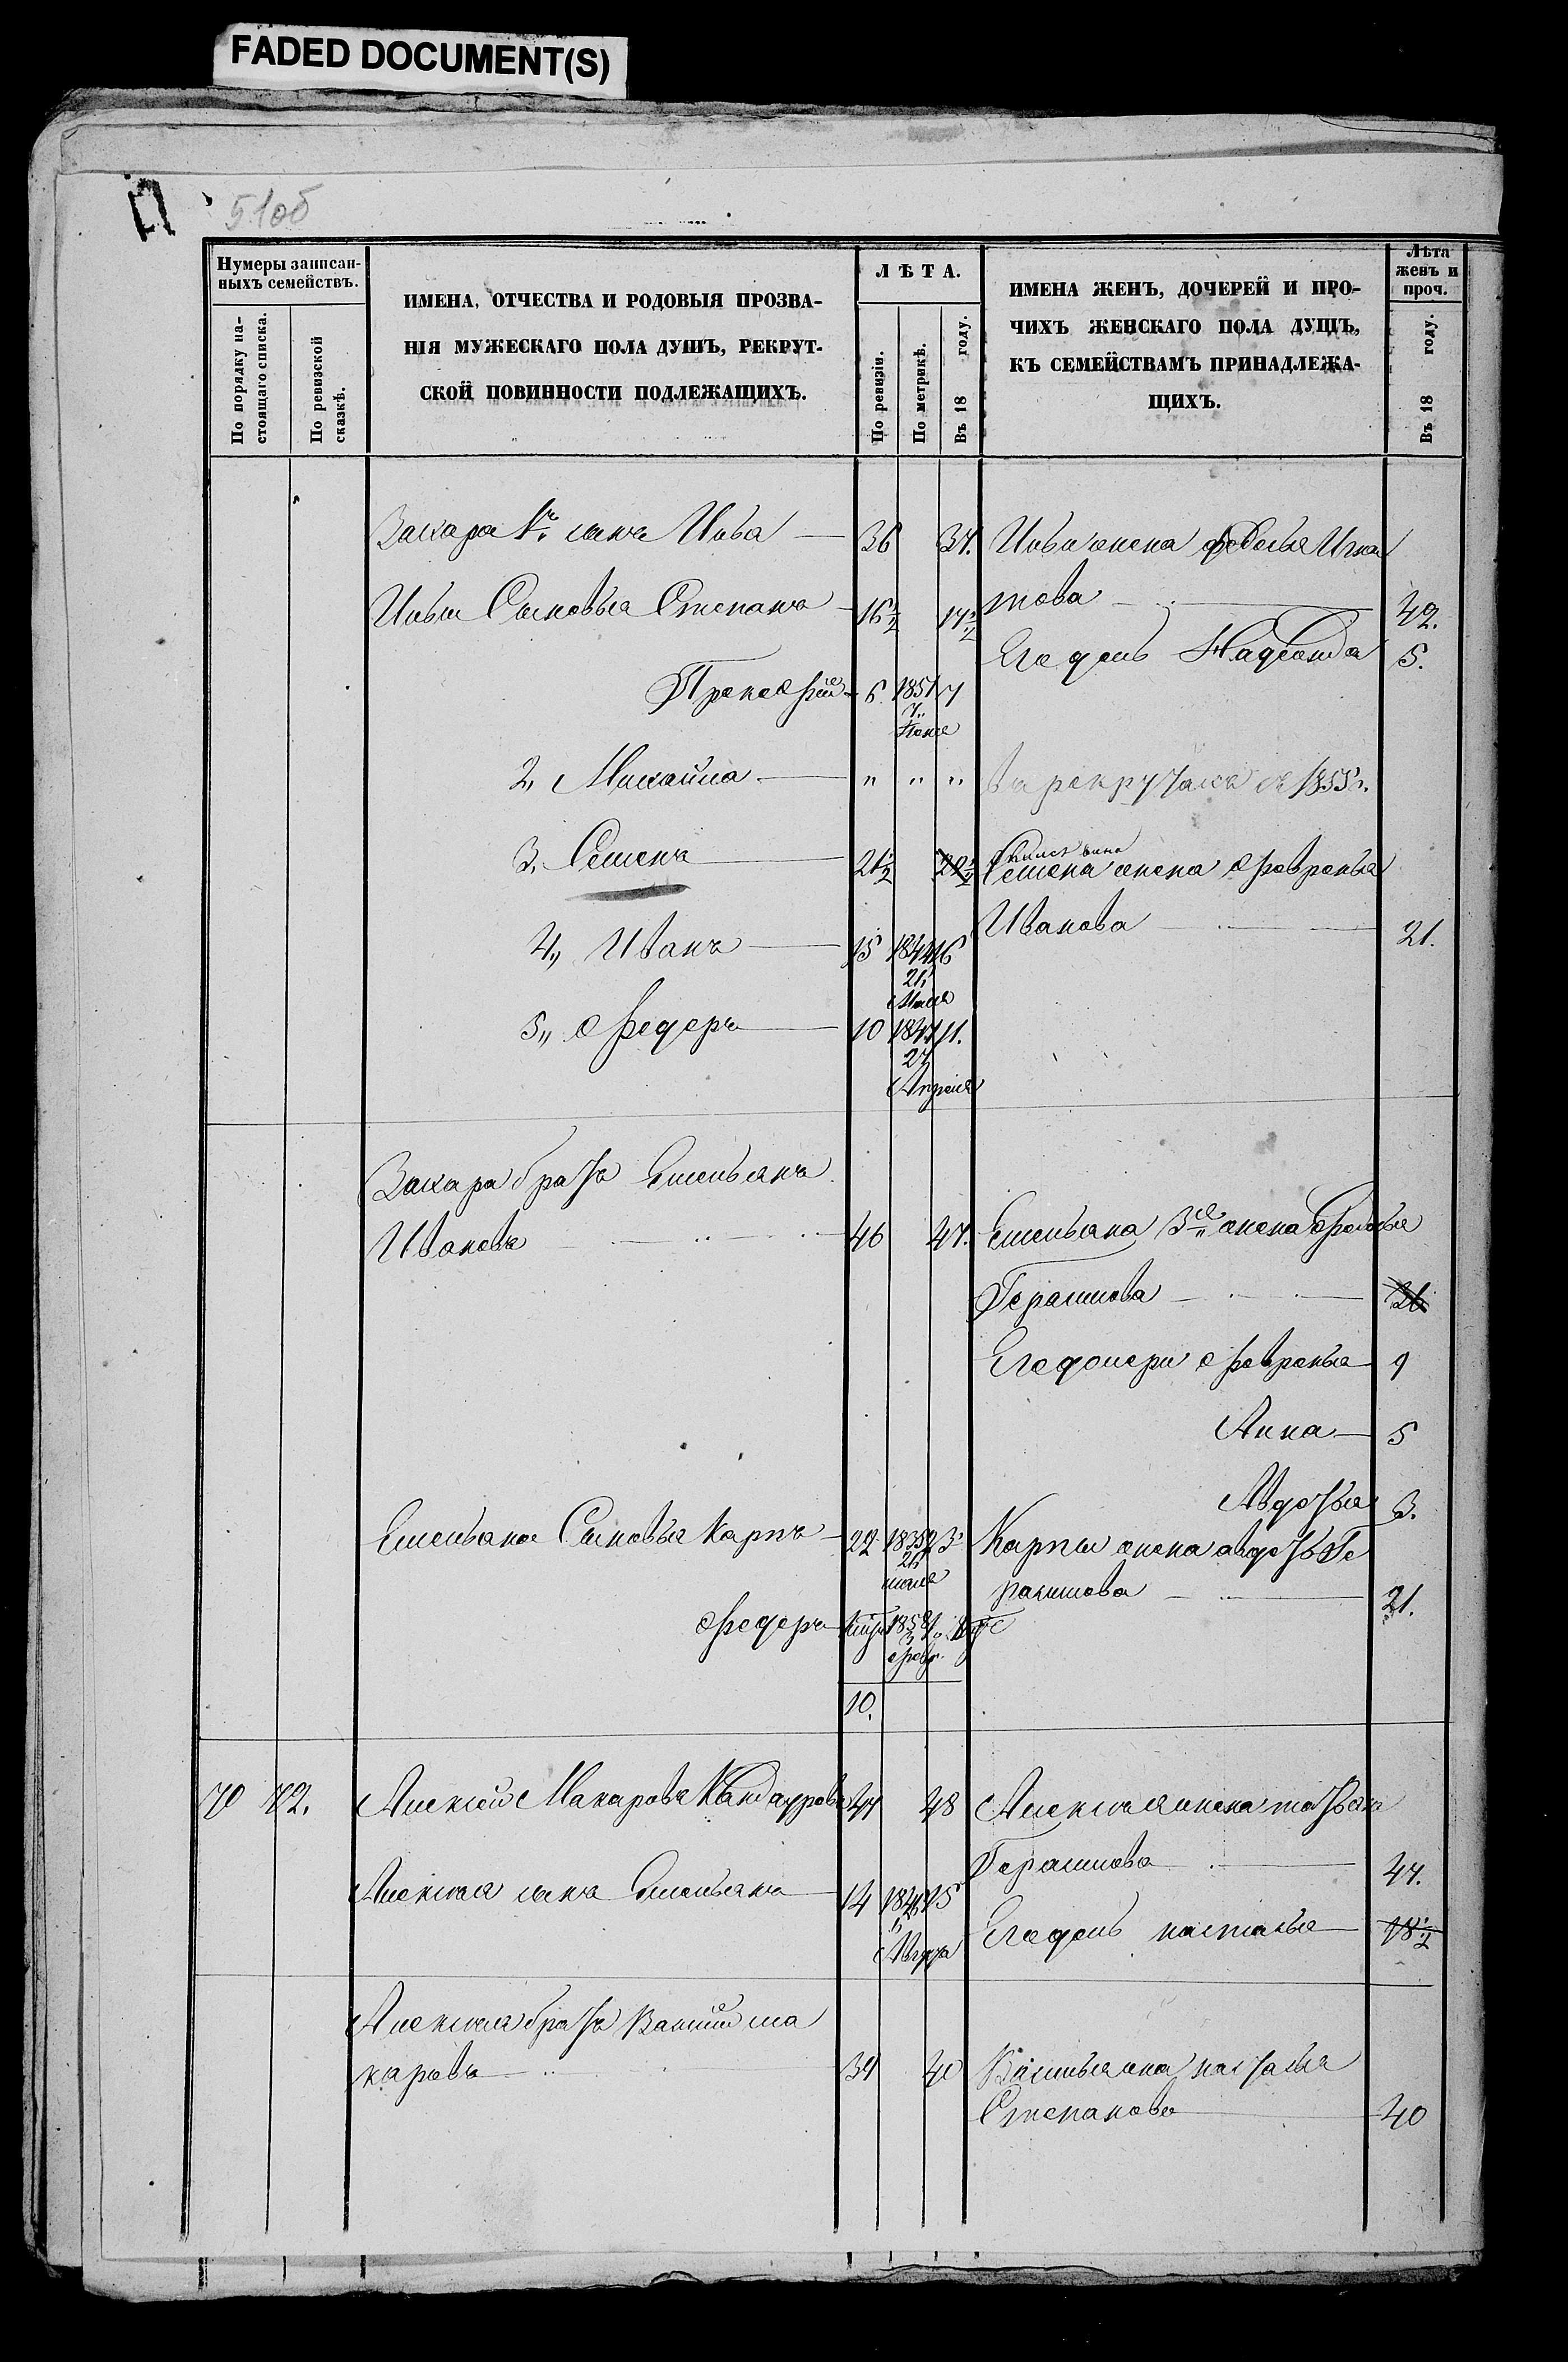 FADED DOCUMENT(S)
51об
Нумеры записан-
ныхъ семействъ.
По порядку на-
стоящаго списка.
По ревизской
сказкѣ.
ИМЕНА, ОТЧЕСТВА И РОДОВЫЯ ПРОЗВА-
НІЯ МУЖЕСКАГО ПОЛА ДУШЪ, РЕКРУТ-
СКОЙ ПОВИННОСТИ ПОДЛЕЖАЩИХЪ.
ЛѢТА.
По ревизіи.
По метрикѣ.
Въ 18 году.
ИМЕНА ЖЕНЪ, ДОЧЕРЕЙ И ПРО-
ЧИХЪ ЖЕНСКАГО ПОЛА ДУШЪ,
КЪ СЕМЕЙСТВАМЪ ПРИНАДЛЕЖА-
ЩИХЪ.
Лѣта
женъ и
проч.
Въ 18 году.
Захара 1й сынъ Иова 36 37. Иова жена Игна
това 42.
Иова Сыновья Степанъ 16½ 17½
Его дочь Надежда 5.
Прокофій 6 1851 7
7
Іюля
2, Михаила " " " въ рекрутахъ съ 1855 г.
3, Семенъ 21½ 22½ Семена жена Февронья
Иванова 21.
4, Иванъ 15 1844 16
21
Мая
5, Федоръ 10 1847 11.
27
Апреля
Захара братъ Емельянъ
Ивановъ 46 47. Емельяна 3я жена
Герасимова 26
Его дочери Февронья 9
Анна 5
Авдотья 3.
Емельяна Сыновья Карпъ 22 1835 23 Карпа жена авдотья Ге
26
мая
расимова 21.
Федоръ 1858
февр.
10.
70 72. Алексей Макаровъ Кандауровъ 47 48 Алексея жена татьяна
Герасимова 47.
Алексея сынъ Емельянъ 14 15
Его дочь настасья 18½
Алексея братъ Василій ма
каровъ 39 40 Василья жена настасья
Степанова 40